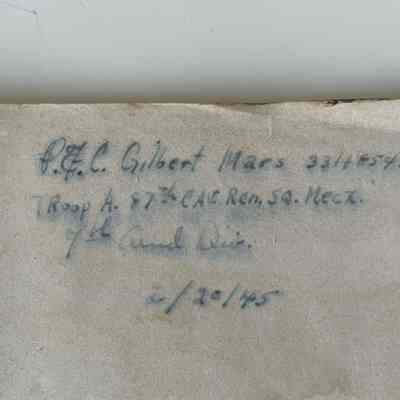 P.F.C. Gilbert Mars
Troop A. 87th CAC Rcn. SQ. Mecz.
7th Amd Div.
2/20/45